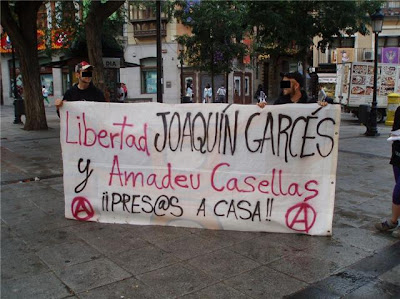 Libertad JOAQUÍN GARCÉS
y Amadeu Casellas
¡¡PRES@S A CASA!!